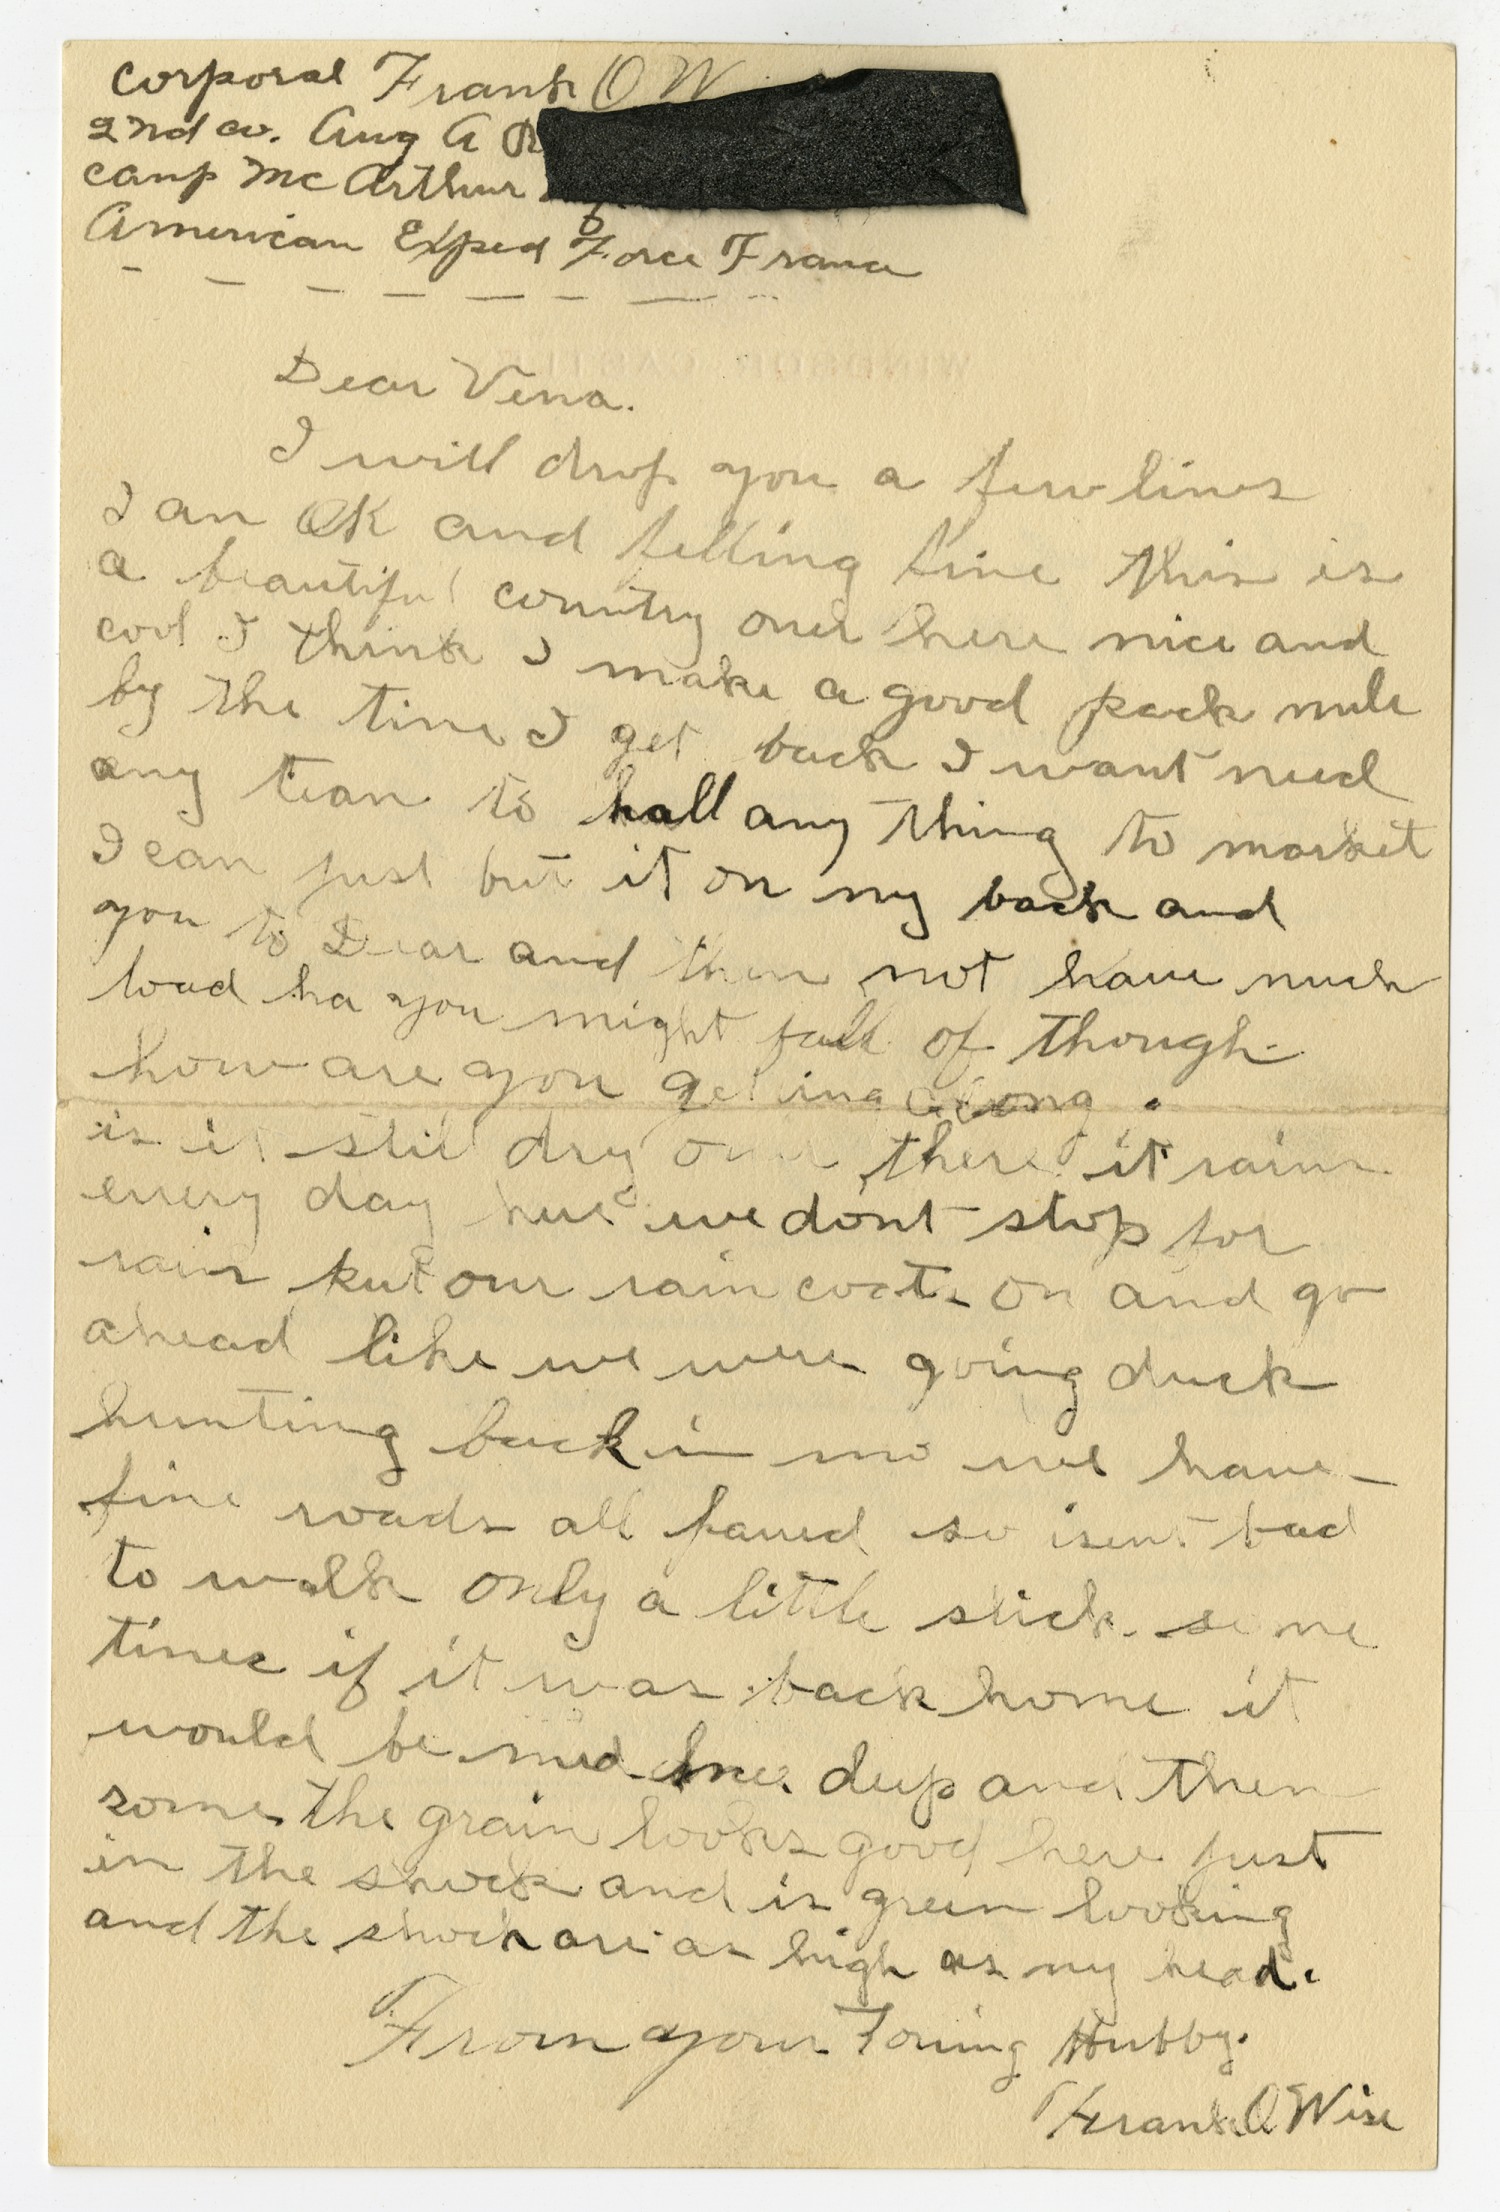 Corporal Frank O W
2nd co. Aug A R
Camp Mc Arthur
American Exped Force France
WINDSOR CASTLE
Dear Vena.
I will drop you a few lines
I am OK and felling fine this is
a beautiful country over here nice and
cool I think I make a good pack mule
by the time I get back I want need
any team to hall any thing to market
I can just but it on my back and
you to Dear and then not have much
load ha you might fall of though.
how are you geting along.
is it still dry over there it rains
every day here we dont stop for
rain put our rain coats on and go
ahead like we were going duck
hunting back in mo we have
fine roads all paved so isent bad
to walk only a little slick some
times if it was back home it
would be mud knee deep and then
some the grain looks good here just
in the shock and is green looking
and the shock are as high as my head.
From your Loving Hubby.
Frank O Wise